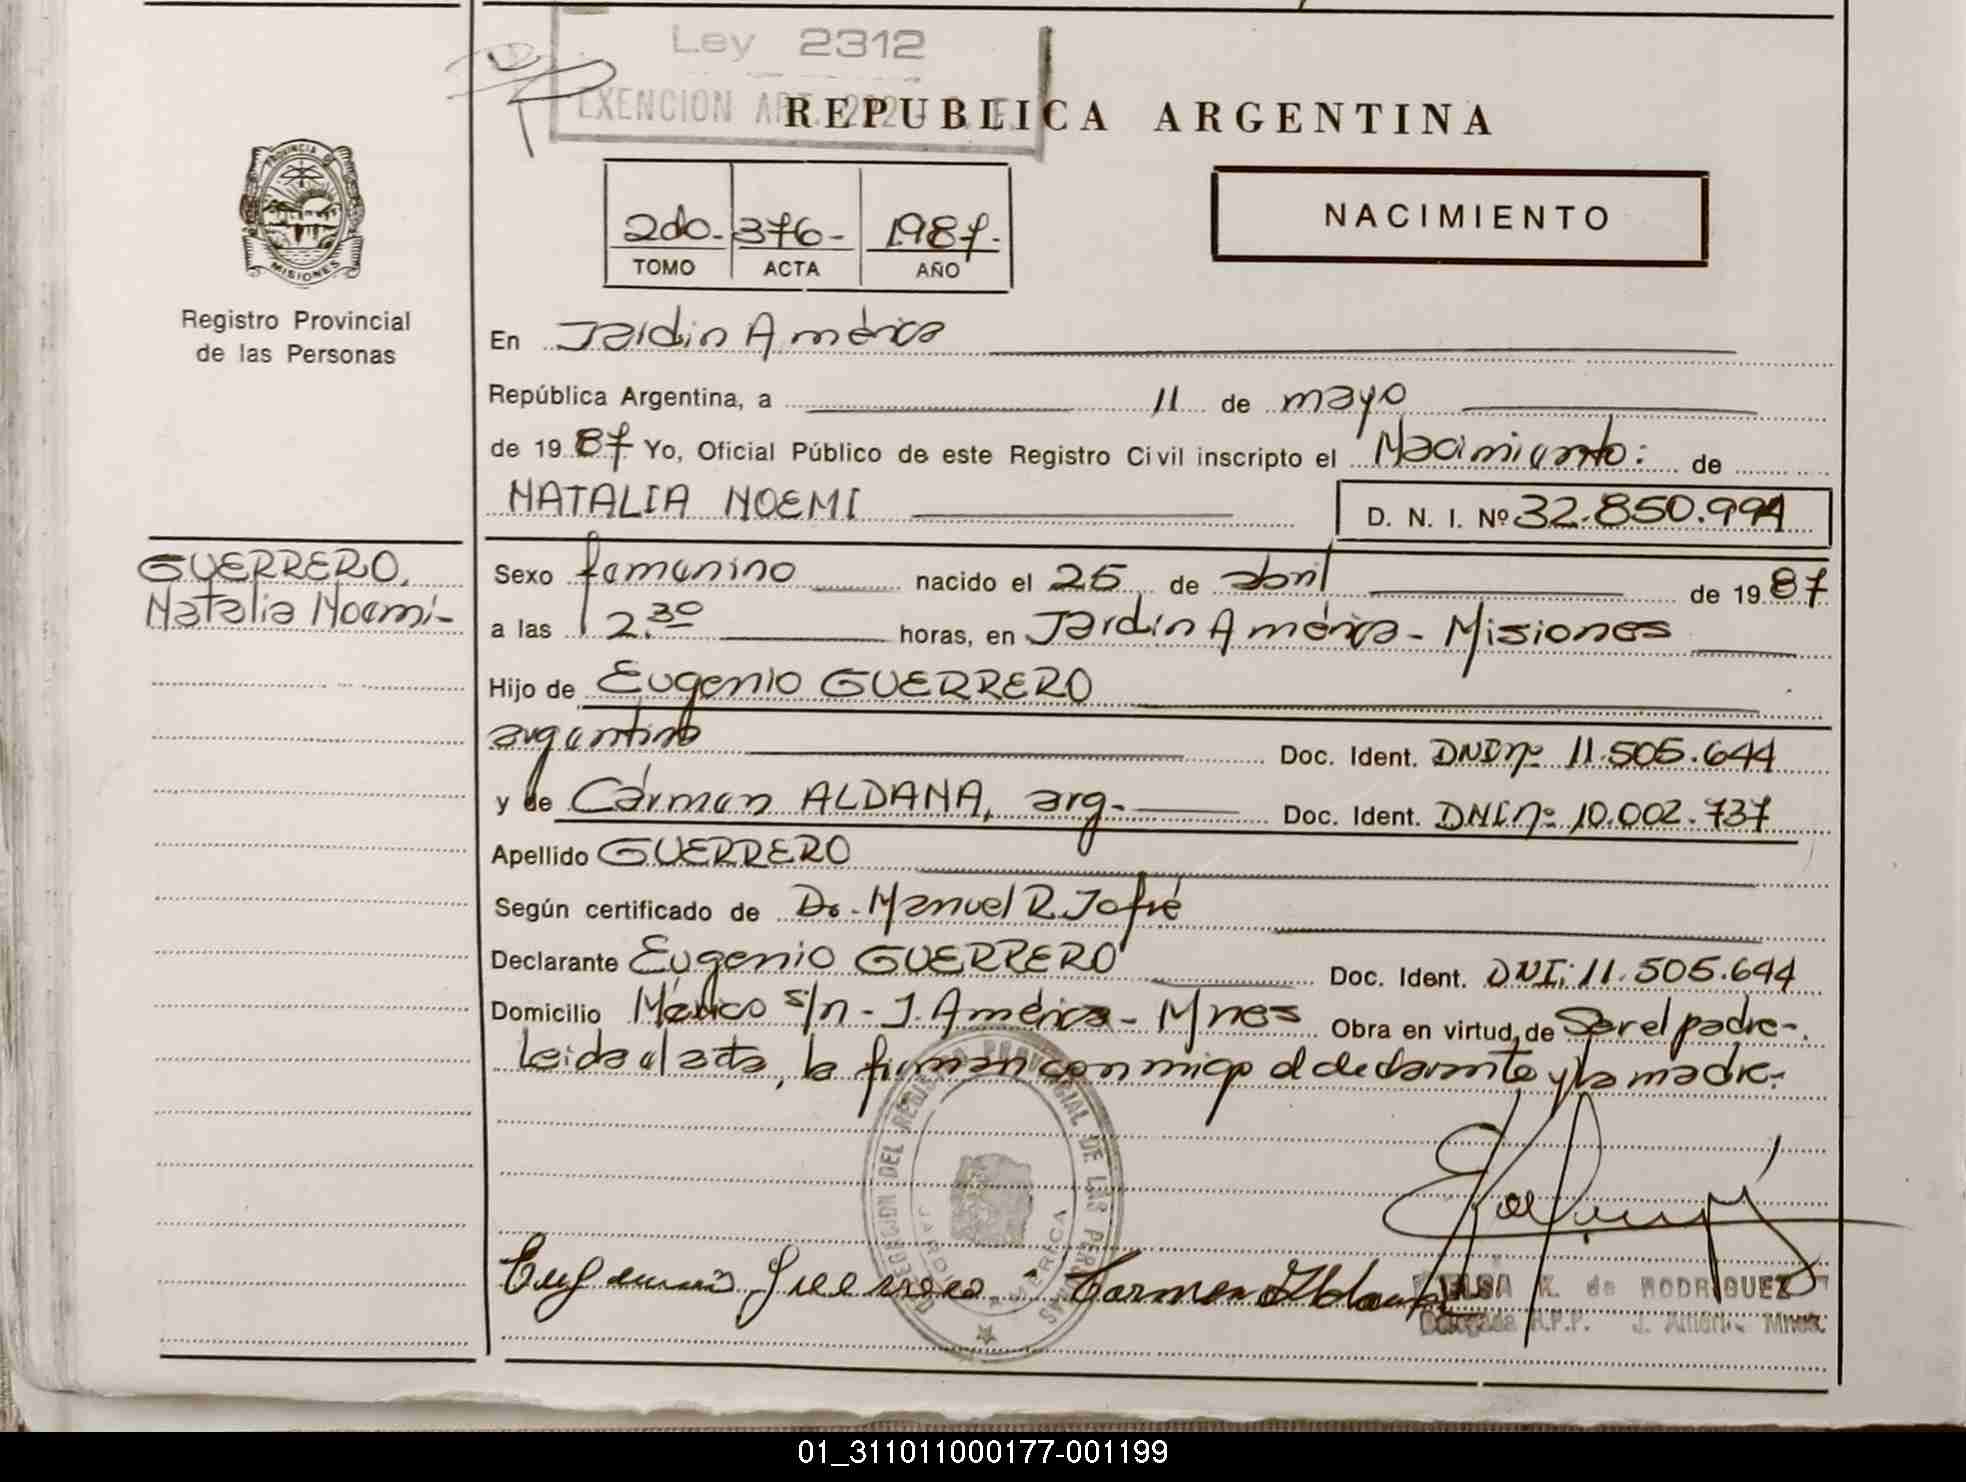 Ley 2312
EXENCION ART.
REPUBLICA ARGENTINA
PROVINCIA D
MISIONES
Registro Provincial
de las Personas
2do.- 376- 1987.-
TOMO ACTA AÑO
NACIMIENTO
En Jardin América
República Argentina, a 11 de mayo
de 1987 Yo, Oficial Público de este Registro Civil inscripto el Nacimiento: de
NATALIA NOEMI D. N. I. Nº 32.850.991
GUERRERO,
Natalia Noemi-
Sexo femenino nacido el 25 de abril de 1987
a las 2.30 horas, en Jardin América - Misiones
Hijo de Eugenio GUERRERO
argentino Doc. Ident. DNI nº 11.505.644
y de Cármen ALDANA, arg.- Doc. Ident. DNI nº 10.002.737
Apellido GUERRERO
Según certificado de Dr. Manuel R. Jofré
Declarante Eugenio GUERRERO Doc. Ident. DNI: 11.505.644
Domicilio México s/n - J. América - Mnes Obra en virtud de Ser el padre-.
Leida el acta, la firman conmigo el declarante y la madre.-
DELEGACION DEL REGISTRO PROVINCIAL DE LAS PERSONAS
JARDIN AMERICA
Eugenio Guerrero Carmen Aldana
ELSA K. de RODRIGUEZ
Delegada R.P.P. J. América Mnes.
01_311011000177-001199